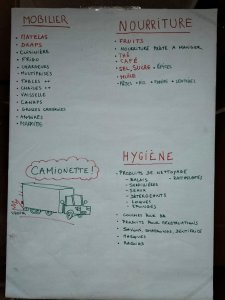 MOBILIER
- MATELAS
- DRAPS
- CUISINIÈRE
- FRIGO
- CHARGEURS
- MULTIPRISES
- TABLES ++
- CHAISES ++
- VAISSELLE
- CANAPÉ
- GROSSES CASSEROLES
- MARMITE
NOURRITURE
- FRUITS
- NOURRITURE PRÊTE À MANGER
- THÉ
- CAFÉ
- SEL, SUCRE, ÉPICES
- HUILE
- PÂTES + RIZ + + LENTILLES
CAMIONETTE!
HYGIÈNE
- PRODUITS DE NETTOYAGE
- BALAIS
- SERPILLIÈRES
- SEAUX
- DÉTERGENTS
- ÉPONGES
- COUCHES POUR BB
- PRODUITS POUR MENSTRUATIONS
- SAVONS, SHAMPOINGS, DENTIFRICE
- MASQUES
- RASOIRS